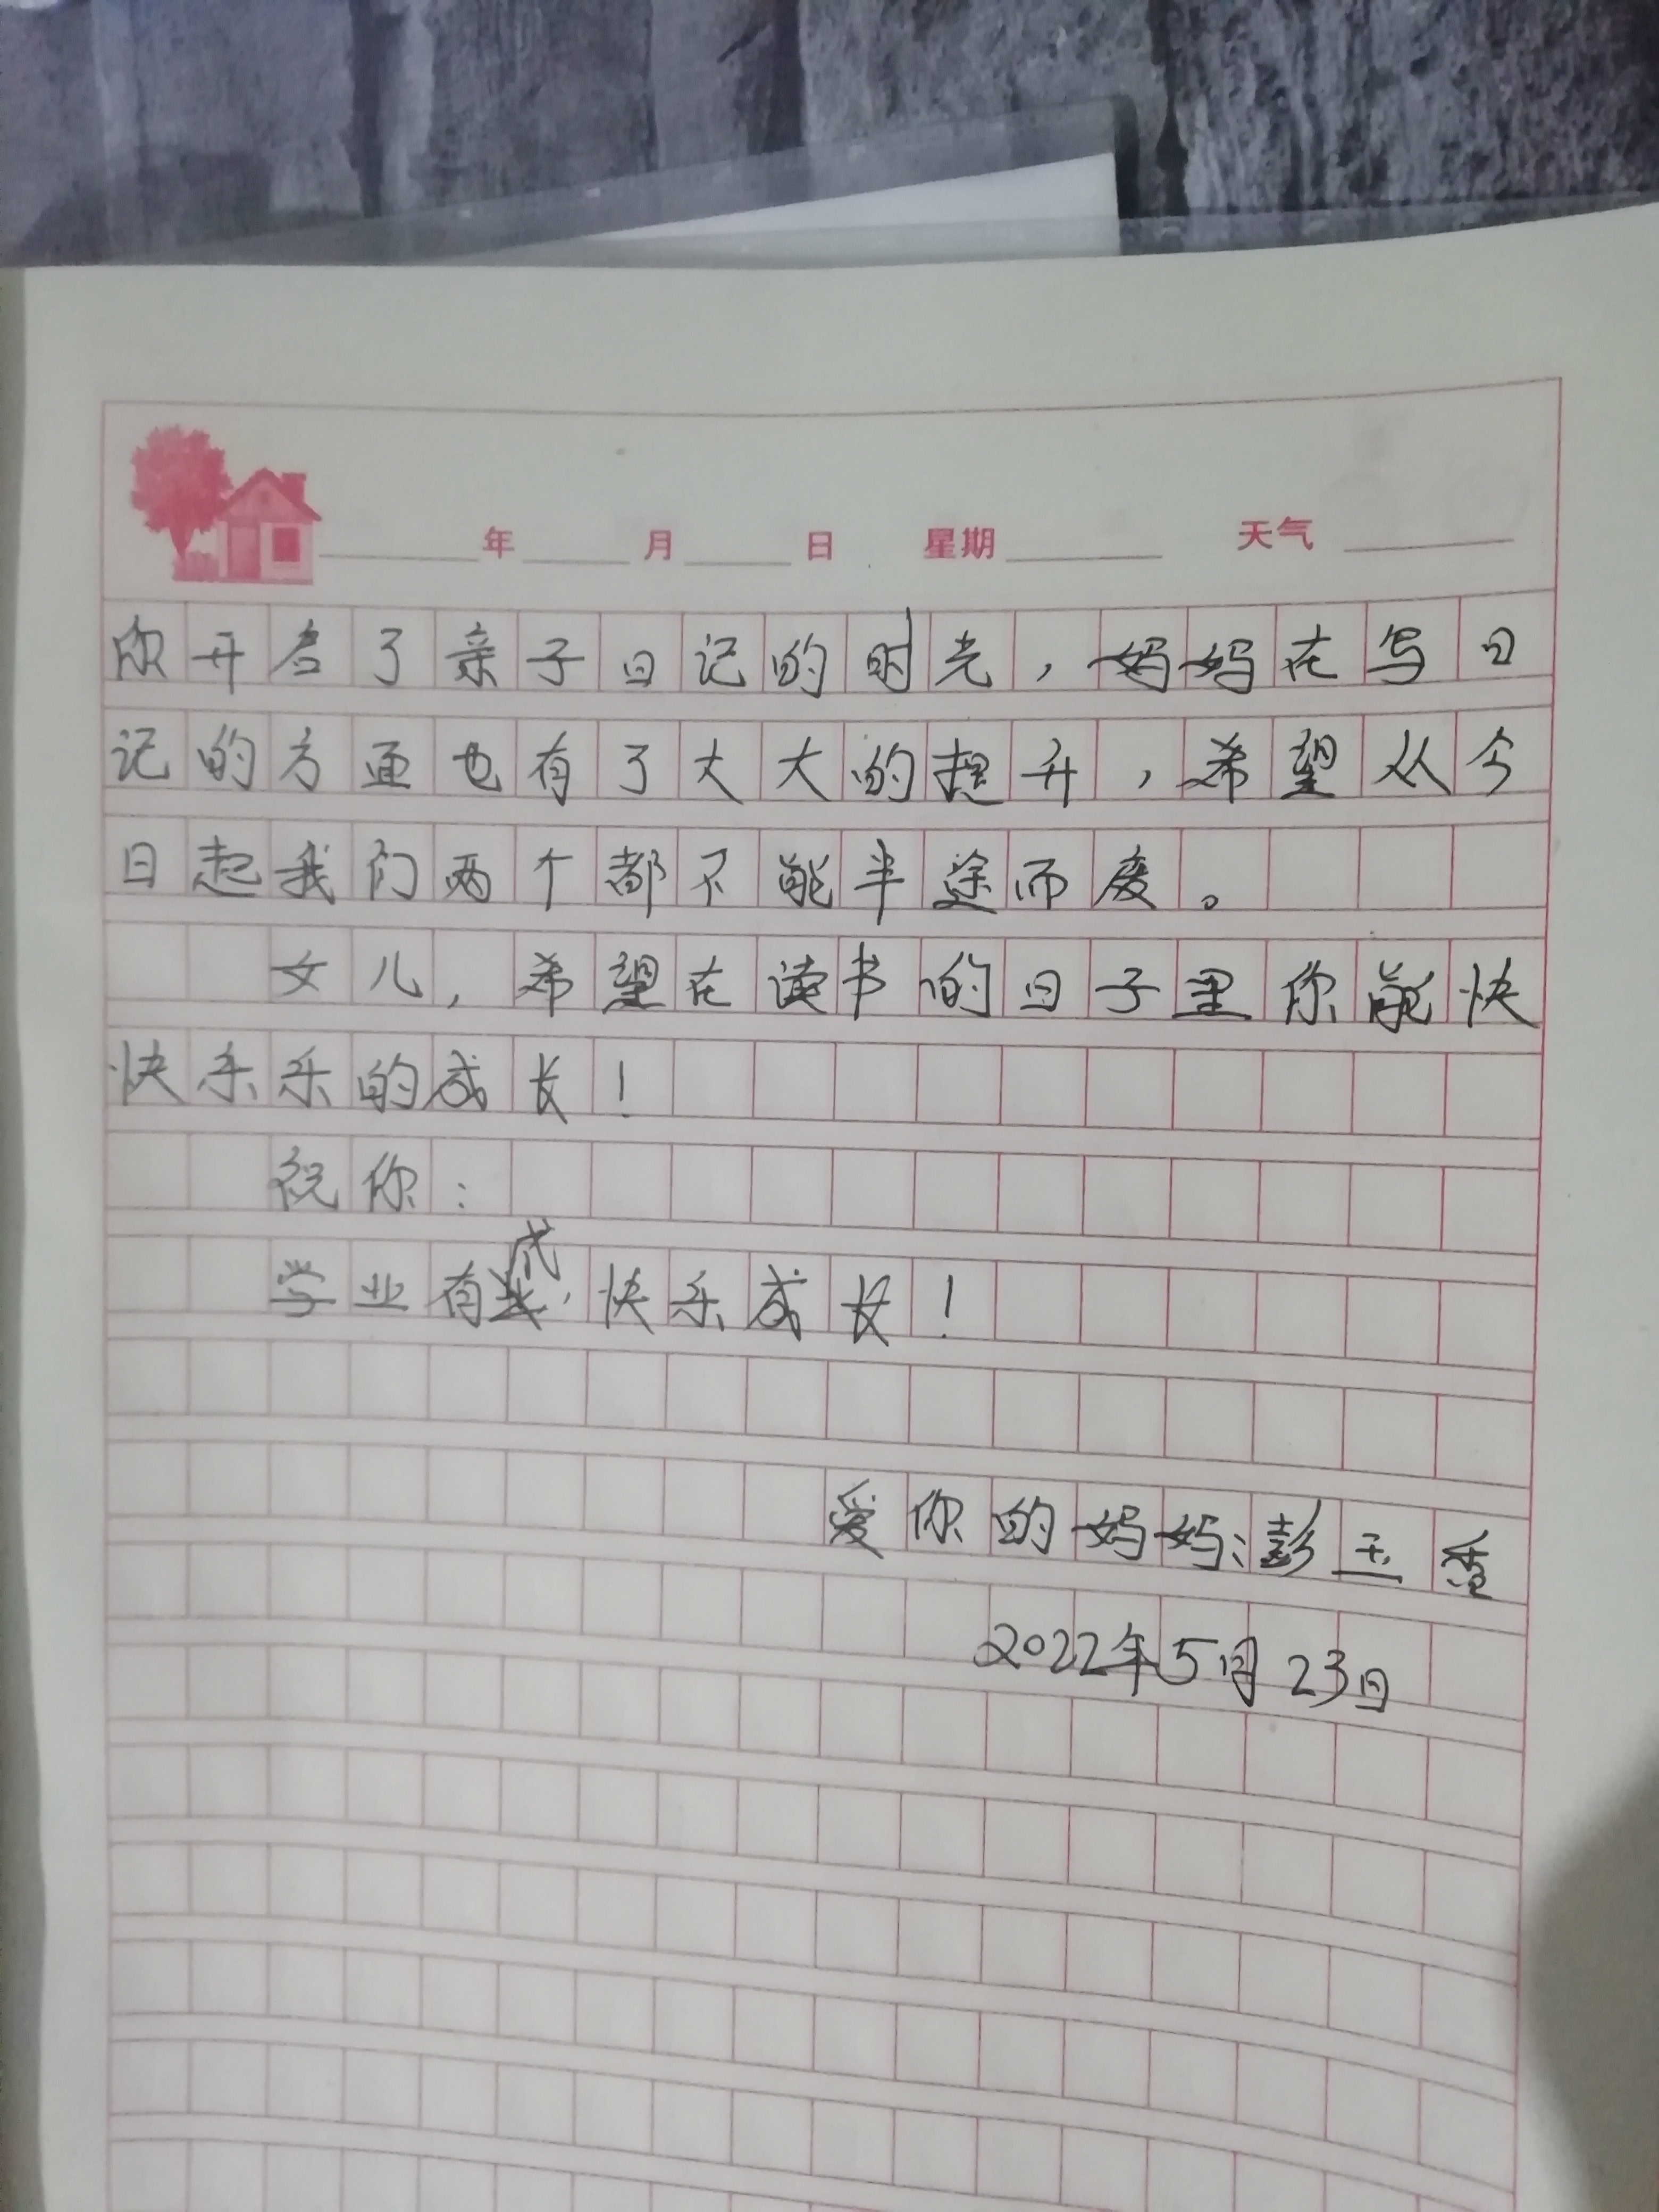 年 月 日 星期 天气
欣开启了亲子日记的时光，妈妈在写日
记的方面也有了大大的提升，希望从今
日起我们两个都不能半途而废。
女儿，希望在读书的日子里你能快
快乐乐的成长！
祝你：
学业有成，快乐成长！
爱你的妈妈：彭玉香
2022年5月23日